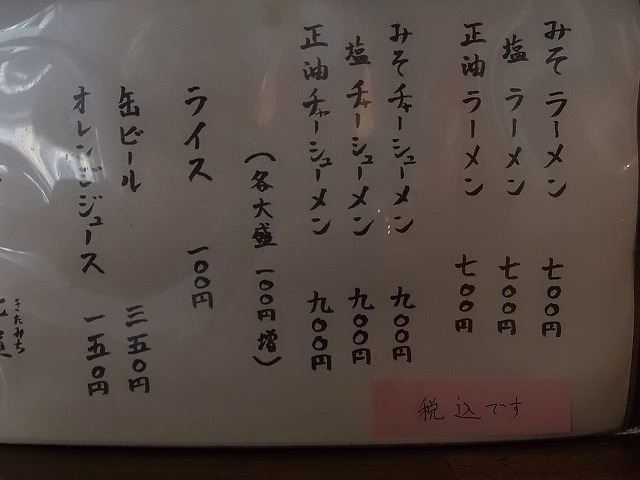 みそラーメン 七〇〇円
塩ラーメン 七〇〇円
正油ラーメン 七〇〇円
みそチャーシューメン 九〇〇円
塩チャーシューメン 九〇〇円
正油チャーシューメン 九〇〇円
(各大盛 一〇〇円増)
ライス 一〇〇円
缶ビール 三五〇円
オレンジジュース 一五〇円
きたみち
税込です